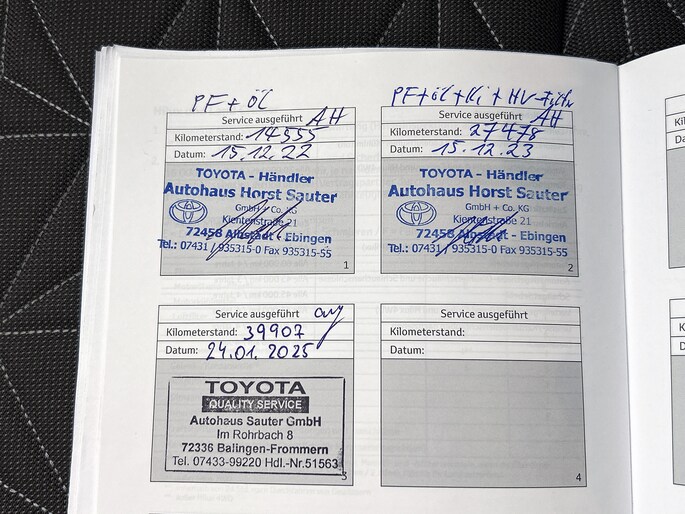 PF + ÖL
Service ausgeführt AH
Kilometerstand: 14355
Datum: 15.12.22
TOYOTA - Händler
Autohaus Horst Sauter
GmbH + Co. KG
Kientenstraße 21
72458 Albstadt - Ebingen
Tel.: 07431 / 935315-0 Fax 935315-55
1
PF + öl + Ki + HV-Filter
Service ausgeführt AH
Kilometerstand: 27478
Datum: 15.12.23
TOYOTA - Händler
Autohaus Horst Sauter
GmbH + Co. KG
Kientenstraße 21
72458 Albstadt - Ebingen
Tel.: 07431 / 935315-0 Fax 935315-55
2
Service ausgeführt
Kilometerstand: 39907
Datum: 24.01.2025
TOYOTA
QUALITY SERVICE
Autohaus Sauter GmbH
Im Rohrbach 8
72336 Balingen-Frommern
Tel. 07433-99220 Hdl.-Nr.51563
3
Service ausgeführt
Kilometerstand:
Datum:
4